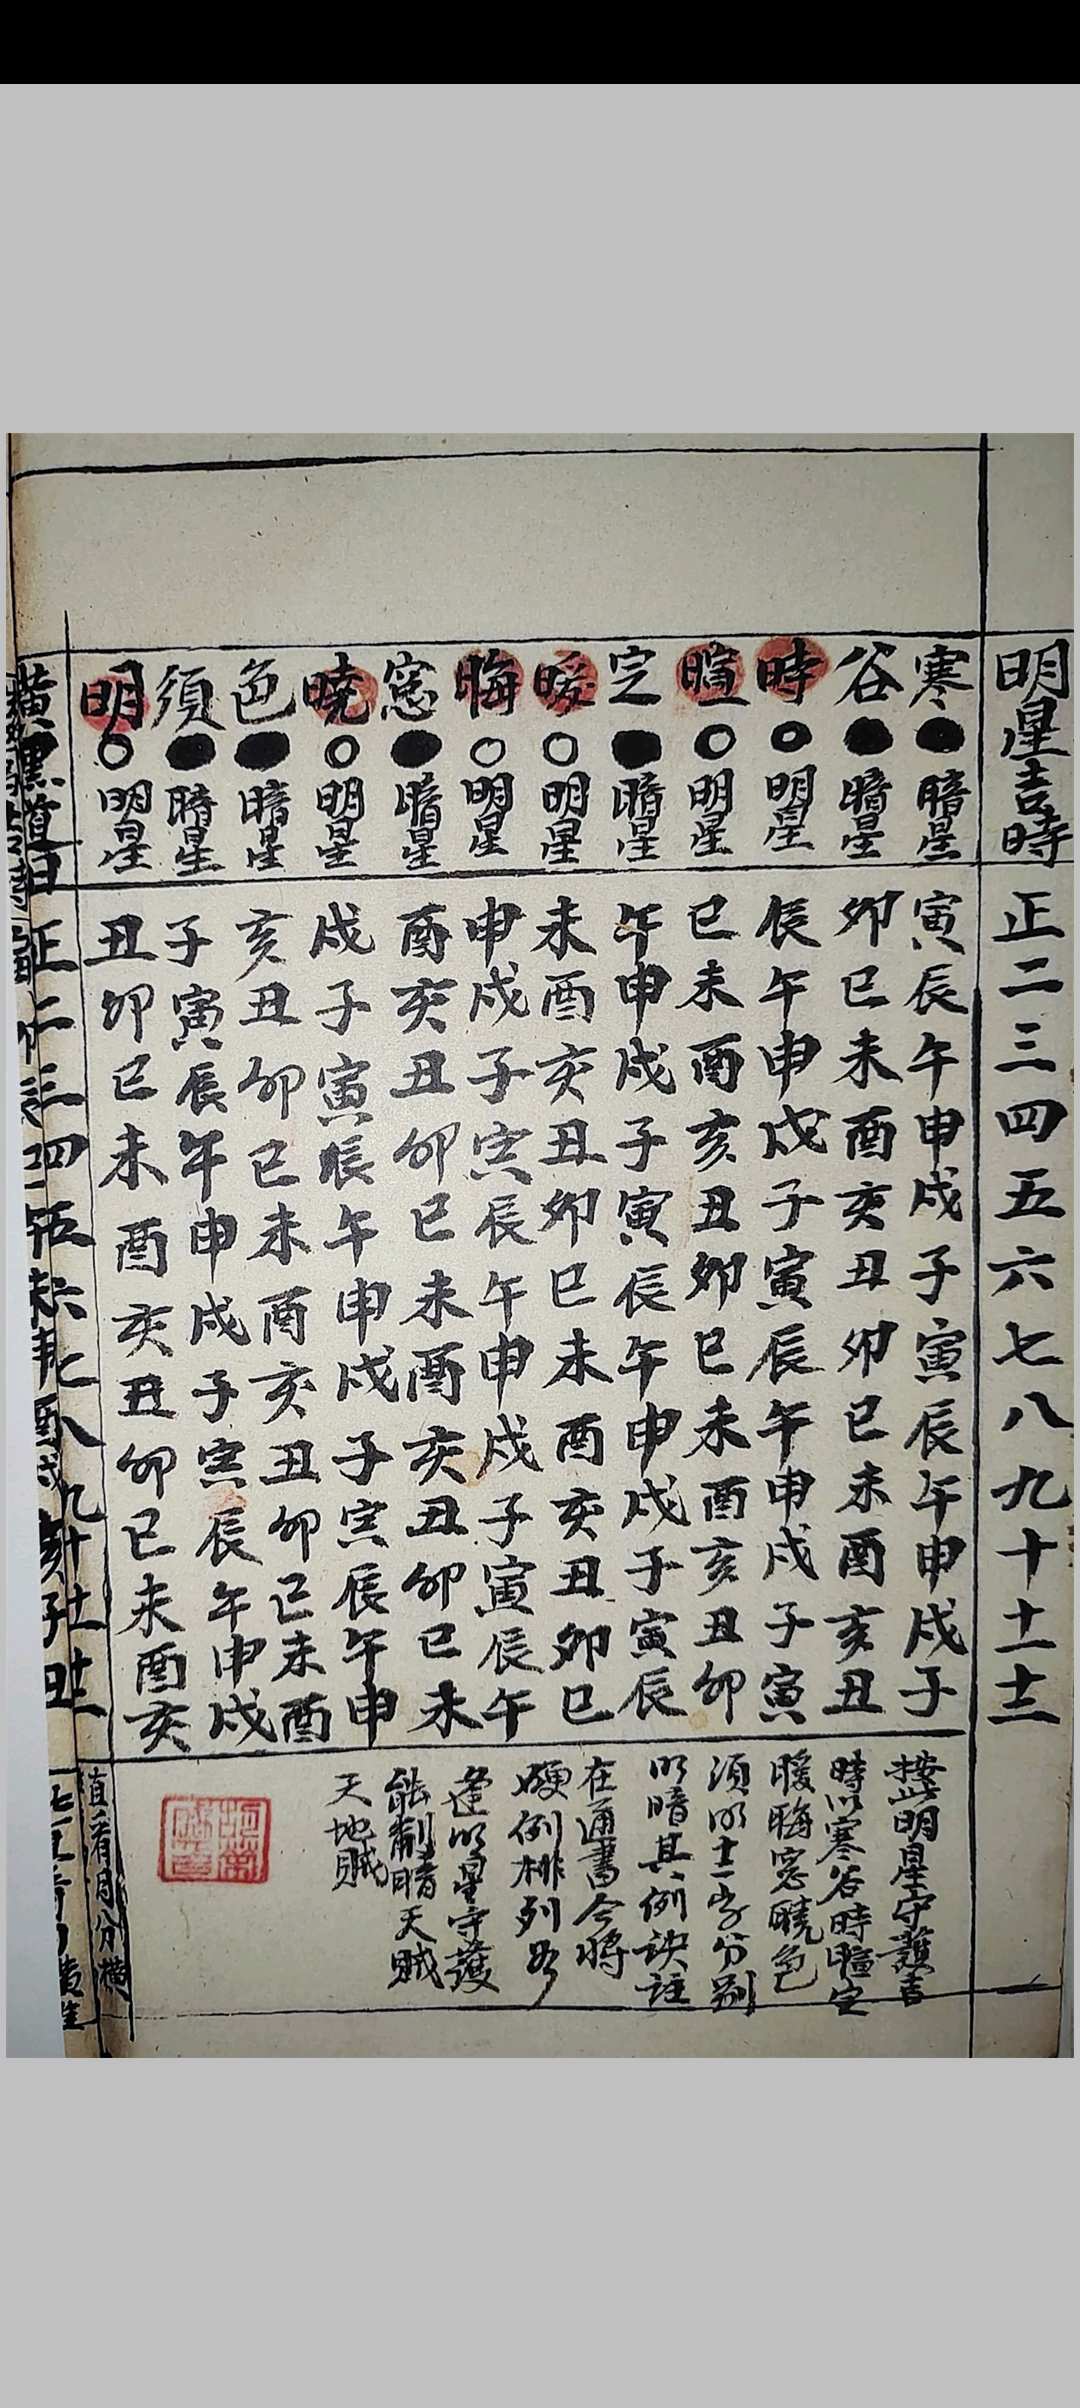 明星吉時 正二三四五六七八九十十一十二
寒●暗星 寅辰午申戌子寅辰午申戌子
谷●暗星 卯巳未酉亥丑卯巳未酉亥丑
時○明星 辰午申戌子寅辰午申戌子寅
暄○明星 巳未酉亥丑卯巳未酉亥丑卯
定●暗星 午申戌子寅辰午申戌子寅辰
暖○明星 未酉亥丑卯巳未酉亥丑卯巳
晦○明星 申戌子寅辰午申戌子寅辰午
窓●暗星 酉亥丑卯巳未酉亥丑卯巳未
曉○明星 戌子寅辰午申戌子寅辰午申
色●暗星 亥丑卯巳未酉亥丑卯巳未酉
須●暗星 子寅辰午申戌子寅辰午申戌
明○明星 丑卯巳未酉亥丑卯巳未酉亥
按此明星守護吉
時以寒谷時暄定
暖晦窓曉色
須明十二字分別
明暗其例訣註
在通書今將
硬例排列
逢明星守護
能制暗天賊
天地賊
黃黑道日 正二三四五六七八九十十一十二
直看月分橫